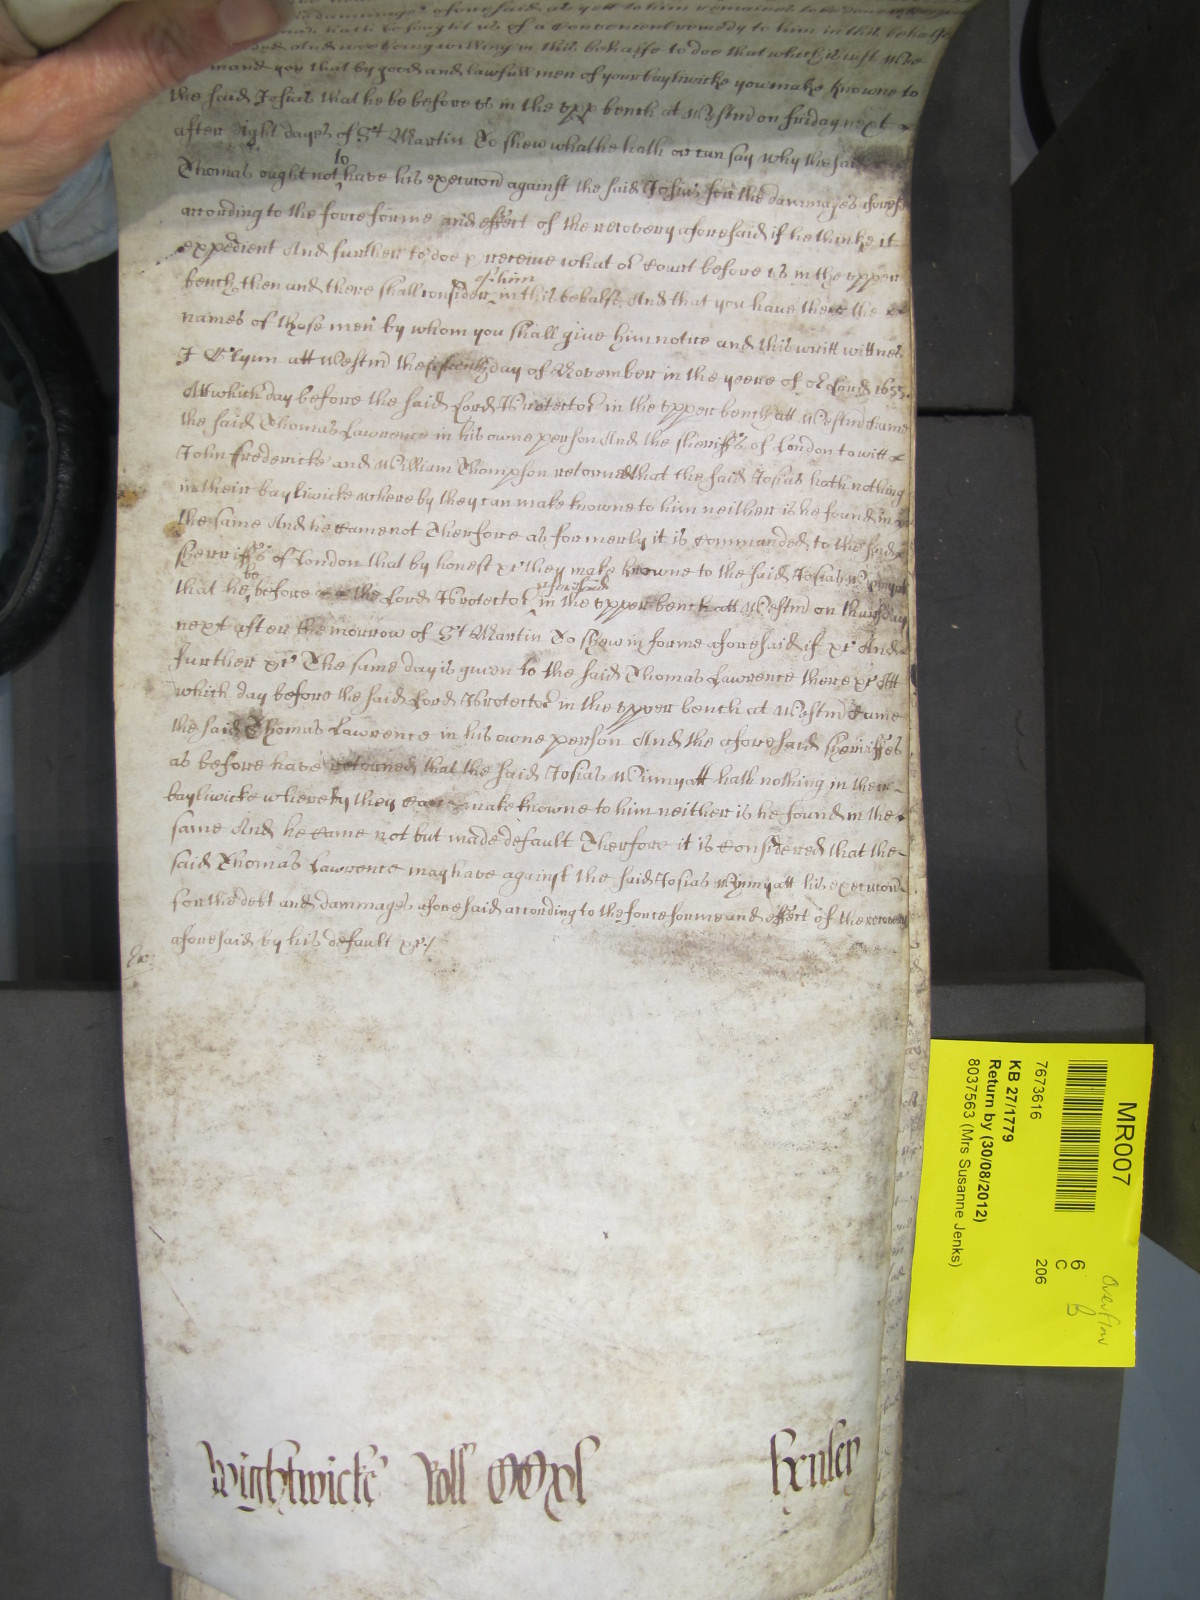 dammages aforesaid as yett to him remaines to be done
hath besought us of a convenient remedy to him in this behalfe
And wee being willing in this behalfe to doe that which is just Wee
mand you that by good and lawfull men of your bayliwicke you make knowne to
the said Josias that he be before us in the upp bench at Westmr on friday next
after eight dayes of St Martin To shew what he hath or can say why the said
Thomas ought not to have his execucon against the said Josias for the dammages aforesd
according to the force forme and effect of the recovery aforesaid if he thinke it
expedient And further to doe & receive what or Court before us in the upper
bench then and there shall consider of him in this behalfe And that you have there the
names of those men by whom you shall give him notice and this writt wittnes
J Glynn att Westmr the day of November in the yeere of or Lord 1655
Att which day before the said Lord Protector in the upper bench att Westmr came
the said Thomas Lawrence in his owne person And the sheriffs of London to witt
John Fredericke and William Thompson retorned that the said Josias hath nothing
in their bayliwicke whereby they can make knowne to him neither is he found in
the same And he came not Therfore as formerly it is commanded to the said
sherriffs of London that by honest &c they make knowne to the said Josias Wimyatt
that he be before the Lord Protector aforesaid in the upper bench att Westmr on thursday
next after the morrow of St Martin To shew in forme aforesaid if &c And
further &c The same day is given to the said Thomas Lawrence there &c Att
which day before the said Lord Protector in the upper bench at Westmr came
the said Thomas Lawrence in his owne person And the aforesaid sherriffes
as before have retorned that the said Josias Wimyatt hath nothing in their
bayliwicke whereby they can make knowne to him neither is he found in the
same And he came not but made default Therfore it is considered that the
said Thomas Lawrence may have against the said Josias Wymyatt his execucon
for the debt and dammages aforesaid according to the force forme and effect of the recovery
aforesaid by his default &c/
Wightwicke Roll CCxl Henley
MR007
7673616
KB 27/1779
Return by (30/08/2012)
8037563 (Mrs Susanne Jenks)
6
C
206
Overflow
B